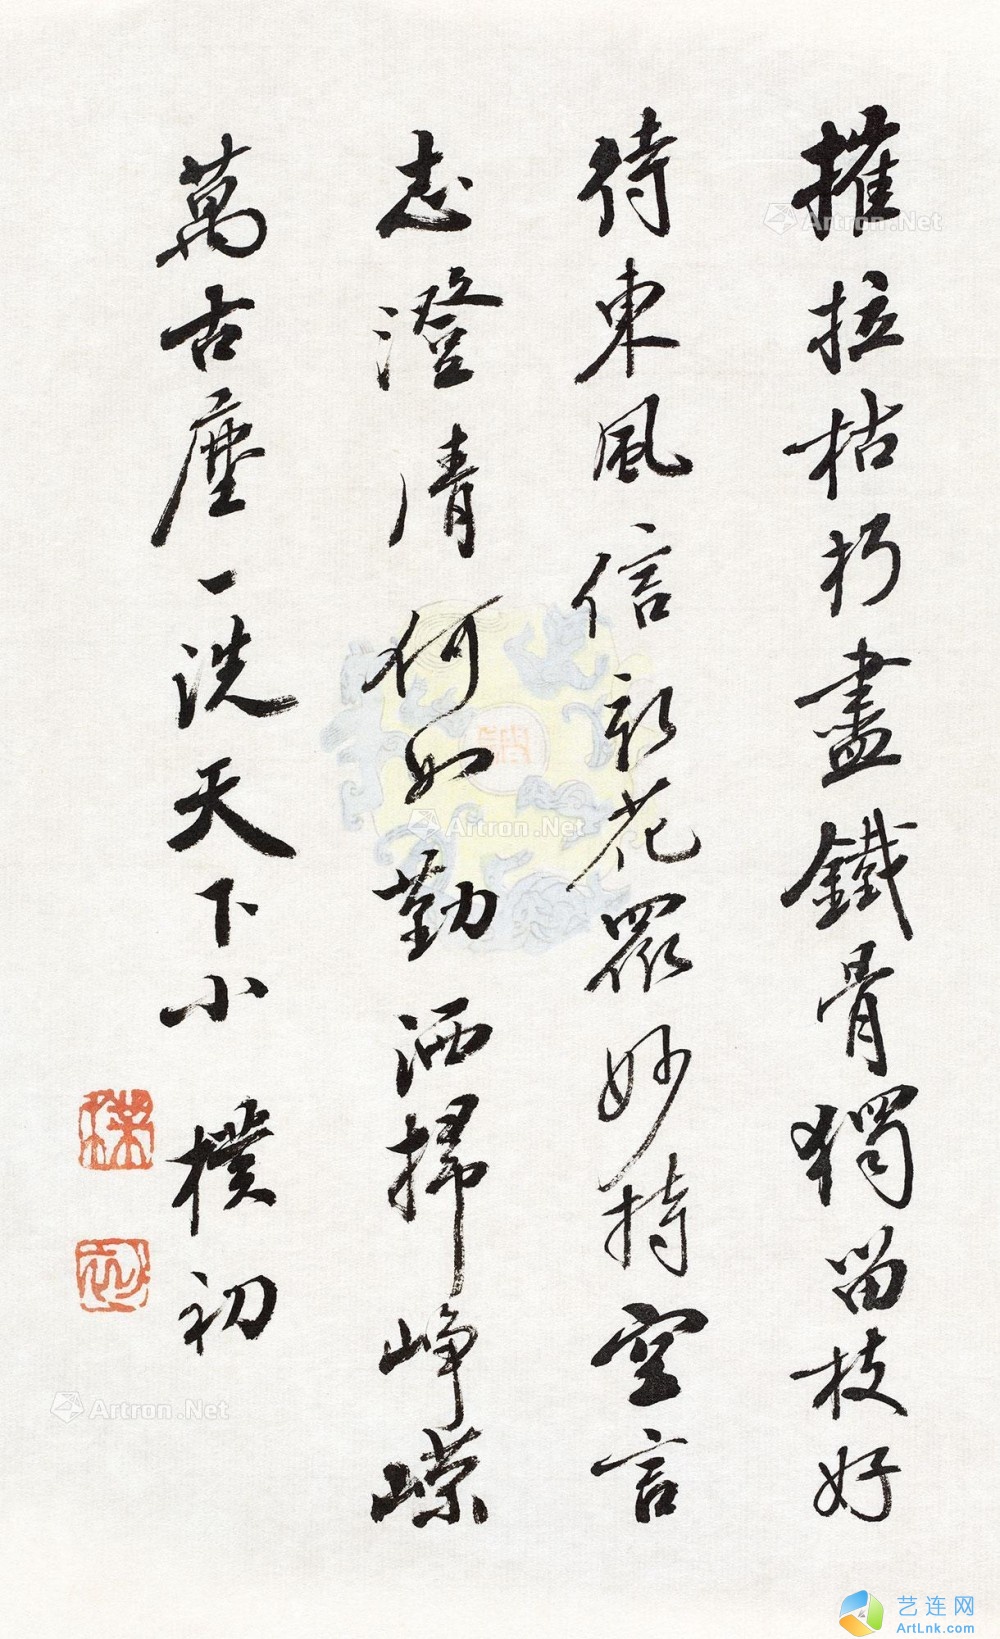 摧拉枯朽盡鐵骨獨留枝好
待東風信報花眾妙持空言
志澄清何如勤洒掃崢嶸
萬古塵一洗天下小 樸初
Artron.Net
Artron.Net
Artron.Net
艺连网
ArtLnk.com